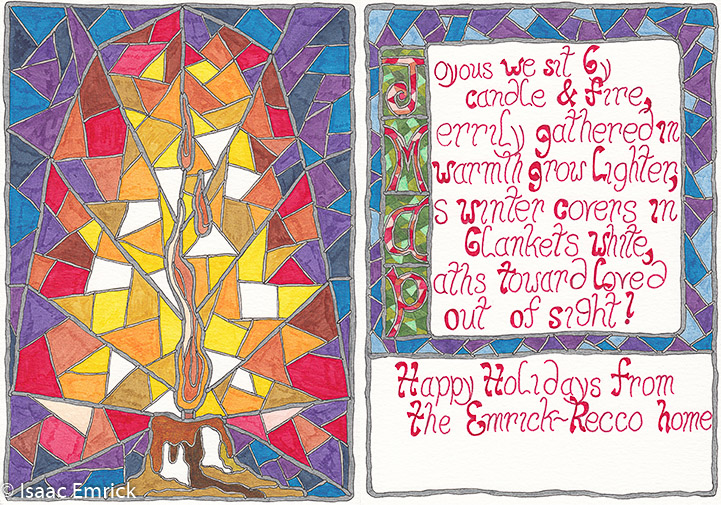 Joyous we sit by
candle & fire,
Merrily gathered in
warmth grow lighter,
As winter covers in
blankets white,
Paths toward loved
out of sight!
Happy Holidays from
the Emrick~Recco home
© Isaac Emrick